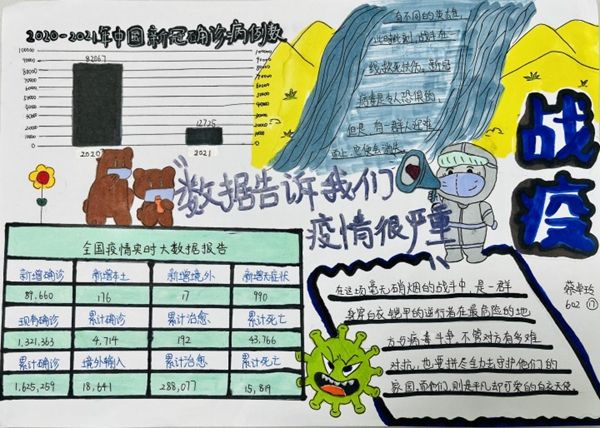 2020-2021年中国新冠确诊病例数
100000
90000
80000
70000
60000
50000
40000
30000
20000
10000
0
82067
12725
2020
2021
有不同的英雄,
此时此刻,战斗在
病毒是令人恐惧的,
但是,有一群人迎难
而上,
战疫
"数据告诉我们
疫情很严重
全国疫情实时大数据报告
新增确诊 新增本土 新增境外 新增无症状
89,660 176 17 990
现有确诊 累计确诊 累计治愈 累计死亡
1,321,363 4,714 192 43,766
累计确诊 境外输入 累计治愈 累计死亡
1,625,259 18,641 288,077 15,819
在这场毫无硝烟的战斗中,是一群
身穿白衣铠甲的逆行者在最危险的地
方与病毒斗争,不管对方有多难
对抗,也要拼尽全力去守护他们的
家园,而他们,则是平凡却可爱的白衣天使。
602 17